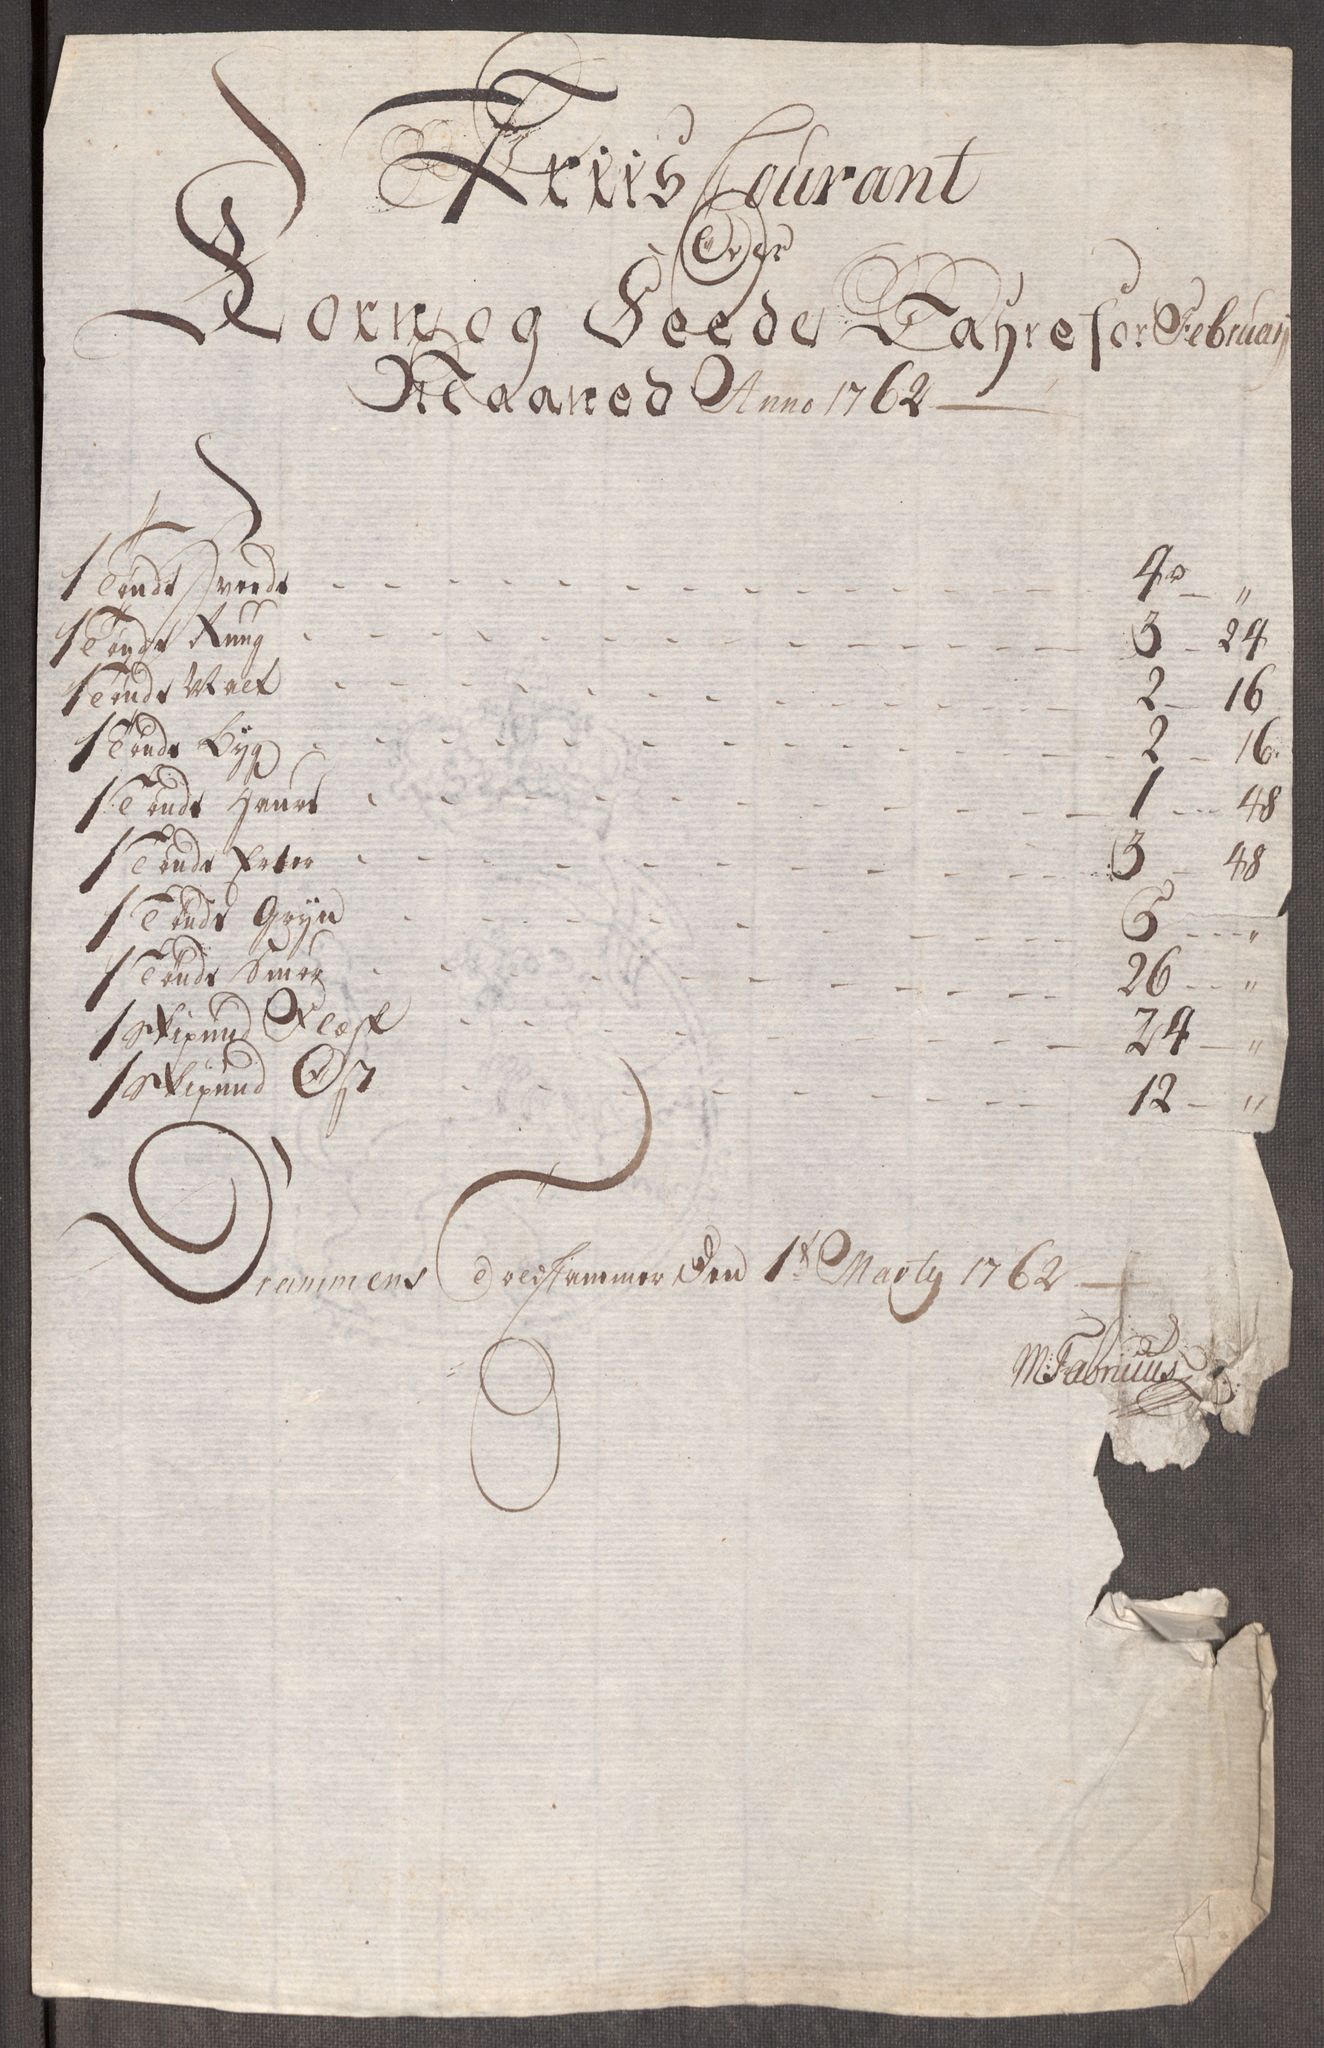 Priis Courant
Over
Korn og Feede Vahre for February
Maaned Anno 1762
1 Tønde Hvede 4 rd "
1 Tønde Ruug 3 24
1 Tønde Malt 2 16
1 Tønde Byg 2 16
1 Tønde Haure 1 48
1 Tønde Erter 3 48
1 Tønde Gryn 6 "
1 Tønde Smør 26 "
1 Skipund Flesk 24 "
1 Skipund Ost 12 "
Drammens Tolkammer Den 1t Marty 1762
M: Fabritius